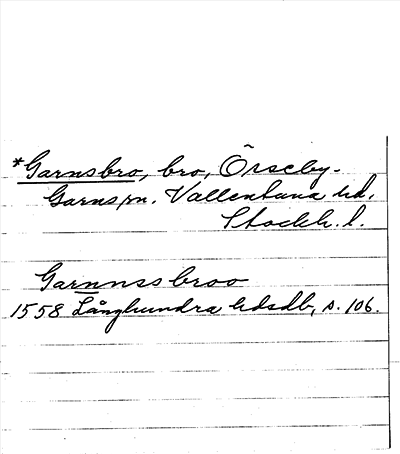 *Garnsbro, bro, Örseby-
Garns sn. Vallentuna hd.
Stockh. l.
Garnnssbroo
1558 Långhundra hdsdb, s. 106.